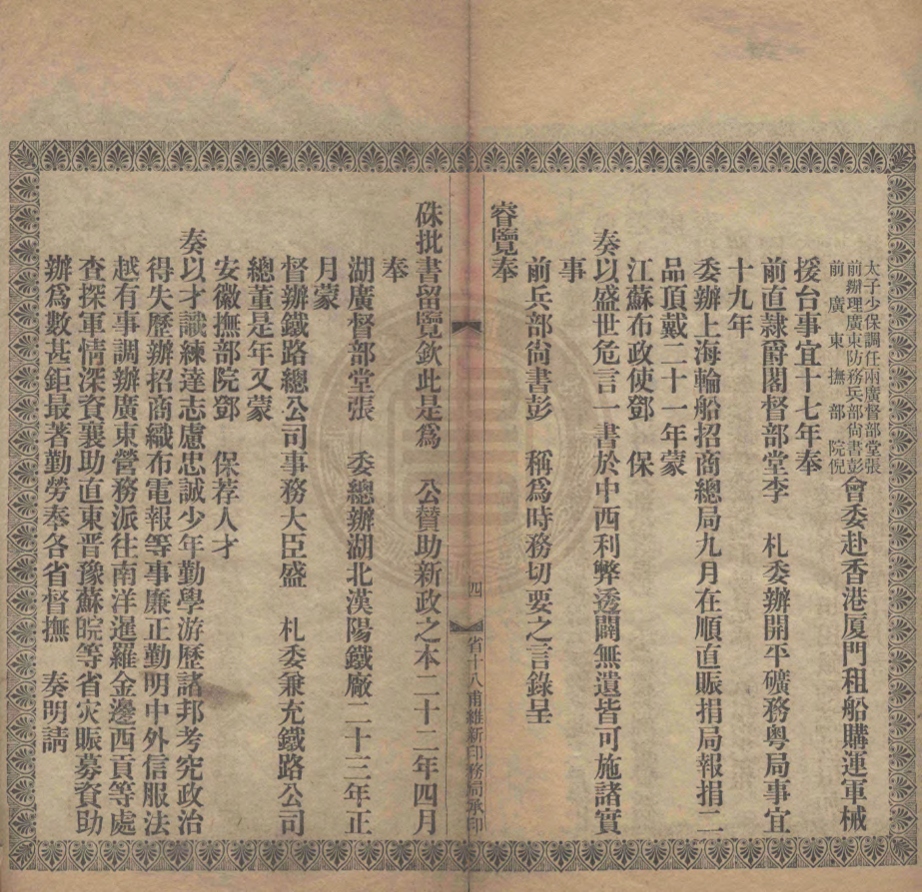 太子少保調任兩廣督部堂張
前辦理廣東防務兵部尙書彭
前廣東撫部院倪
會委赴香港厦門租船購運軍械
援台事宜十七年奉
前直隸爵閣督部堂李　札委辦開平礦務粤局事宜
十九年
委辦上海輪船招商總局九月在順直賑捐局報捐二
品頂戴二十一年蒙
江蘇布政使鄧　保
奏以盛世危言一書於中西利弊透闢無遺皆可施諸實
事
前兵部尙書彭　稱爲時務切要之言錄呈
睿覽奉
四
省十八甫維新印務局承印
硃批書留覽欽此是爲　公贊助新政之本二十二年四月
奉
湖廣督部堂張　委總辦湖北漢陽鐵廠二十三年正
月蒙
督辦鐵路總公司事務大臣盛　札委兼充鐵路公司
總董是年又蒙
安徽撫部院鄧　保荐人才
奏以才識練達志慮忠誠少年勤學游歷諸邦考究政治
得失歷辦招商織布電報等事廉正勤明中外信服法
越有事調辦廣東營務派往南洋暹羅金邊西貢等處
查探軍情深資襄助直東晋豫蘇皖等省灾賑募資助
辦爲數甚鉅最著勤勞奉各省督撫　奏明請